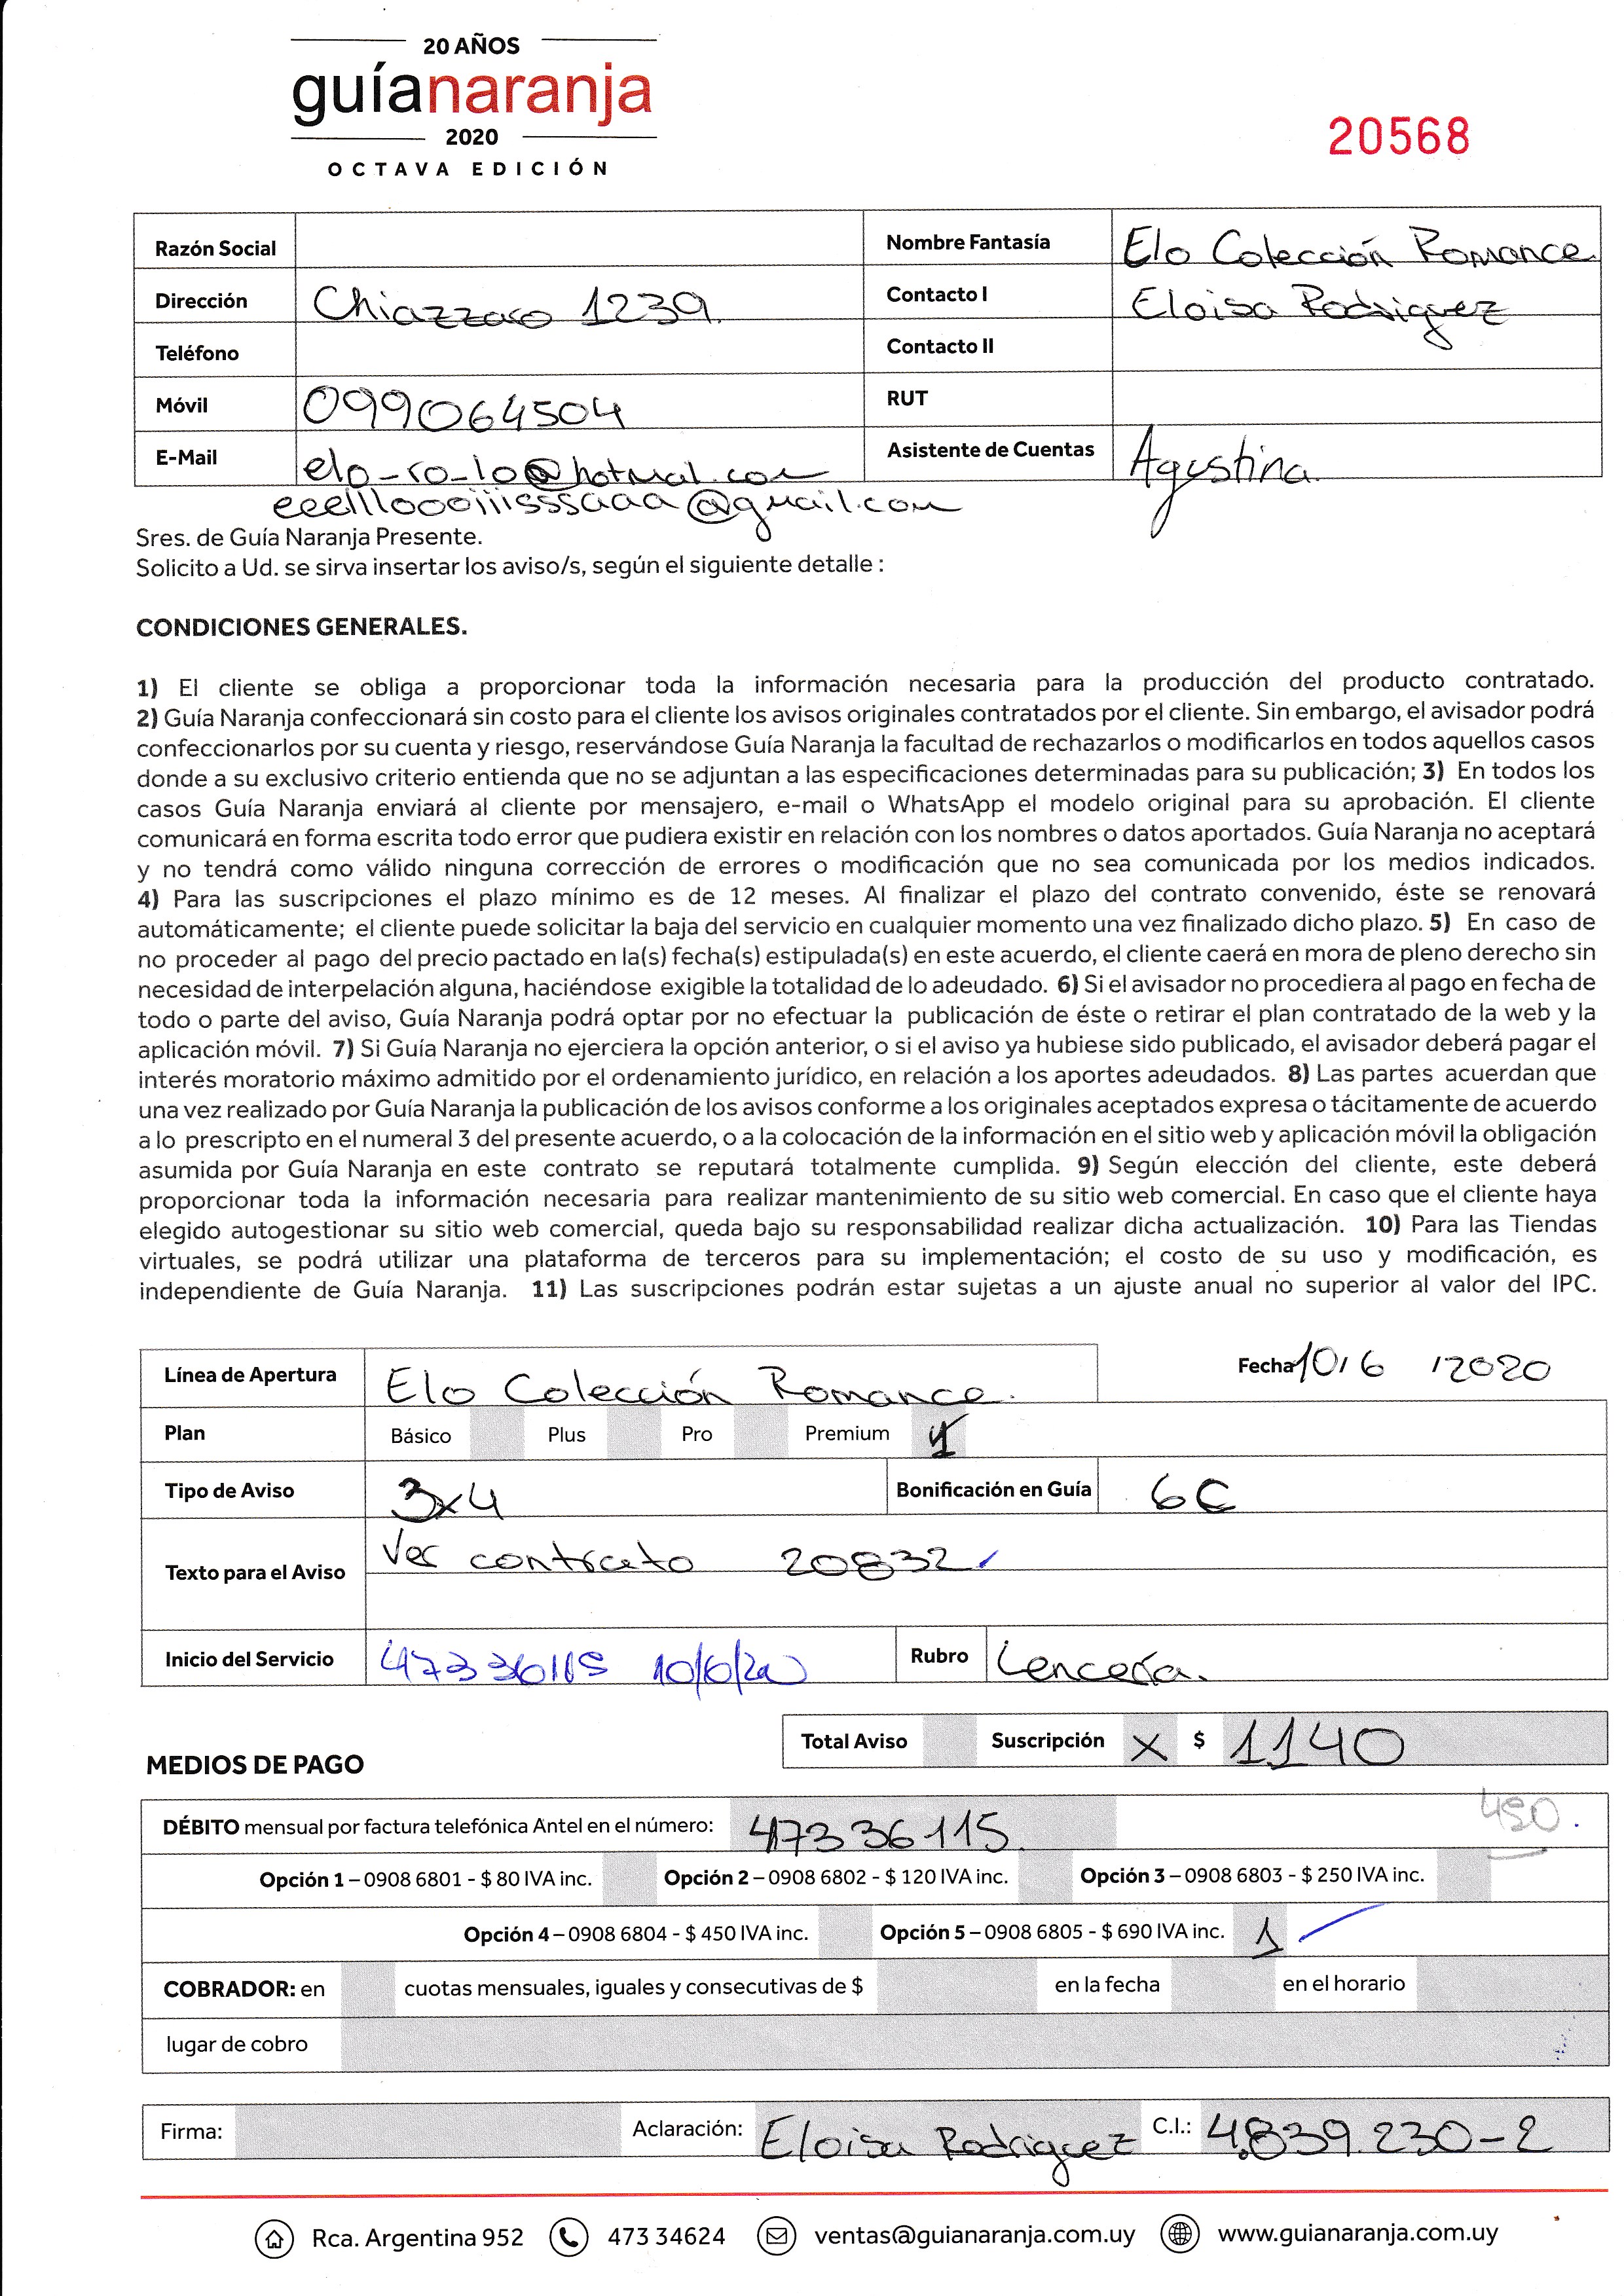 20 AÑOS
guíanaranja
2020
OCTAVA EDICIÓN
20568
Razón Social
Nombre Fantasía Elo Colección Romance
Dirección Chiazzaro 1239
Contacto I Eloisa Rodriguez
Teléfono
Contacto II
Móvil 099064504
RUT
E-Mail elo_ro_lo@hotmal.com
Asistente de Cuentas Agustina
eeellloooiiisssaaa@gmail.com
Sres. de Guía Naranja Presente.
Solicito a Ud. se sirva insertar los aviso/s, según el siguiente detalle :
CONDICIONES GENERALES.
1) El cliente se obliga a proporcionar toda la información necesaria para la producción del producto contratado.
2) Guía Naranja confeccionará sin costo para el cliente los avisos originales contratados por el cliente. Sin embargo, el avisador podrá
confeccionarlos por su cuenta y riesgo, reservándose Guía Naranja la facultad de rechazarlos o modificarlos en todos aquellos casos
donde a su exclusivo criterio entienda que no se adjuntan a las especificaciones determinadas para su publicación; 3) En todos los
casos Guía Naranja enviará al cliente por mensajero, e-mail o WhatsApp el modelo original para su aprobación. El cliente
comunicará en forma escrita todo error que pudiera existir en relación con los nombres o datos aportados. Guía Naranja no aceptará
y no tendrá como válido ninguna corrección de errores o modificación que no sea comunicada por los medios indicados.
4) Para las suscripciones el plazo mínimo es de 12 meses. Al finalizar el plazo del contrato convenido, éste se renovará
automáticamente; el cliente puede solicitar la baja del servicio en cualquier momento una vez finalizado dicho plazo. 5) En caso de
no proceder al pago del precio pactado en la(s) fecha(s) estipulada(s) en este acuerdo, el cliente caerá en mora de pleno derecho sin
necesidad de interpelación alguna, haciéndose exigible la totalidad de lo adeudado. 6) Si el avisador no procediera al pago en fecha de
todo o parte del aviso, Guía Naranja podrá optar por no efectuar la publicación de éste o retirar el plan contratado de la web y la
aplicación móvil. 7) Si Guía Naranja no ejerciera la opción anterior, o si el aviso ya hubiese sido publicado, el avisador deberá pagar el
interés moratorio máximo admitido por el ordenamiento jurídico, en relación a los aportes adeudados. 8) Las partes acuerdan que
una vez realizado por Guía Naranja la publicación de los avisos conforme a los originales aceptados expresa o tácitamente de acuerdo
a lo prescripto en el numeral 3 del presente acuerdo, o a la colocación de la información en el sitio web y aplicación móvil la obligación
asumida por Guía Naranja en este contrato se reputará totalmente cumplida. 9) Según elección del cliente, este deberá
proporcionar toda la información necesaria para realizar mantenimiento de su sitio web comercial. En caso que el cliente haya
elegido autogestionar su sitio web comercial, queda bajo su responsabilidad realizar dicha actualización. 10) Para las Tiendas
virtuales, se podrá utilizar una plataforma de terceros para su implementación; el costo de su uso y modificación, es
independiente de Guía Naranja. 11) Las suscripciones podrán estar sujetas a un ajuste anual no superior al valor del IPC.
Línea de Apertura Elo Colección Romance.
Fecha 10/6/2020
Plan Básico Plus Pro Premium 1
Tipo de Aviso 3x4
Bonificación en Guía 6C
Texto para el Aviso Ver contrato 20832
Inicio del Servicio 47336115 10/6/20
Rubro Lencería.
Total Aviso Suscripción X $ 1140
MEDIOS DE PAGO
DÉBITO mensual por factura telefónica Antel en el número: 47336115 450.
Opción 1 – 0908 6801 - $ 80 IVA inc. Opción 2 – 0908 6802 - $ 120 IVA inc. Opción 3 – 0908 6803 - $ 250 IVA inc.
Opción 4 – 0908 6804 - $ 450 IVA inc. Opción 5 – 0908 6805 - $ 690 IVA inc. 1
COBRADOR: en cuotas mensuales, iguales y consecutivas de $ en la fecha en el horario
lugar de cobro
Firma: Aclaración: Eloisa Rodriguez C.I.: 4.839.230-2
Rca. Argentina 952 473 34624 ventas@guianaranja.com.uy www.guianaranja.com.uy